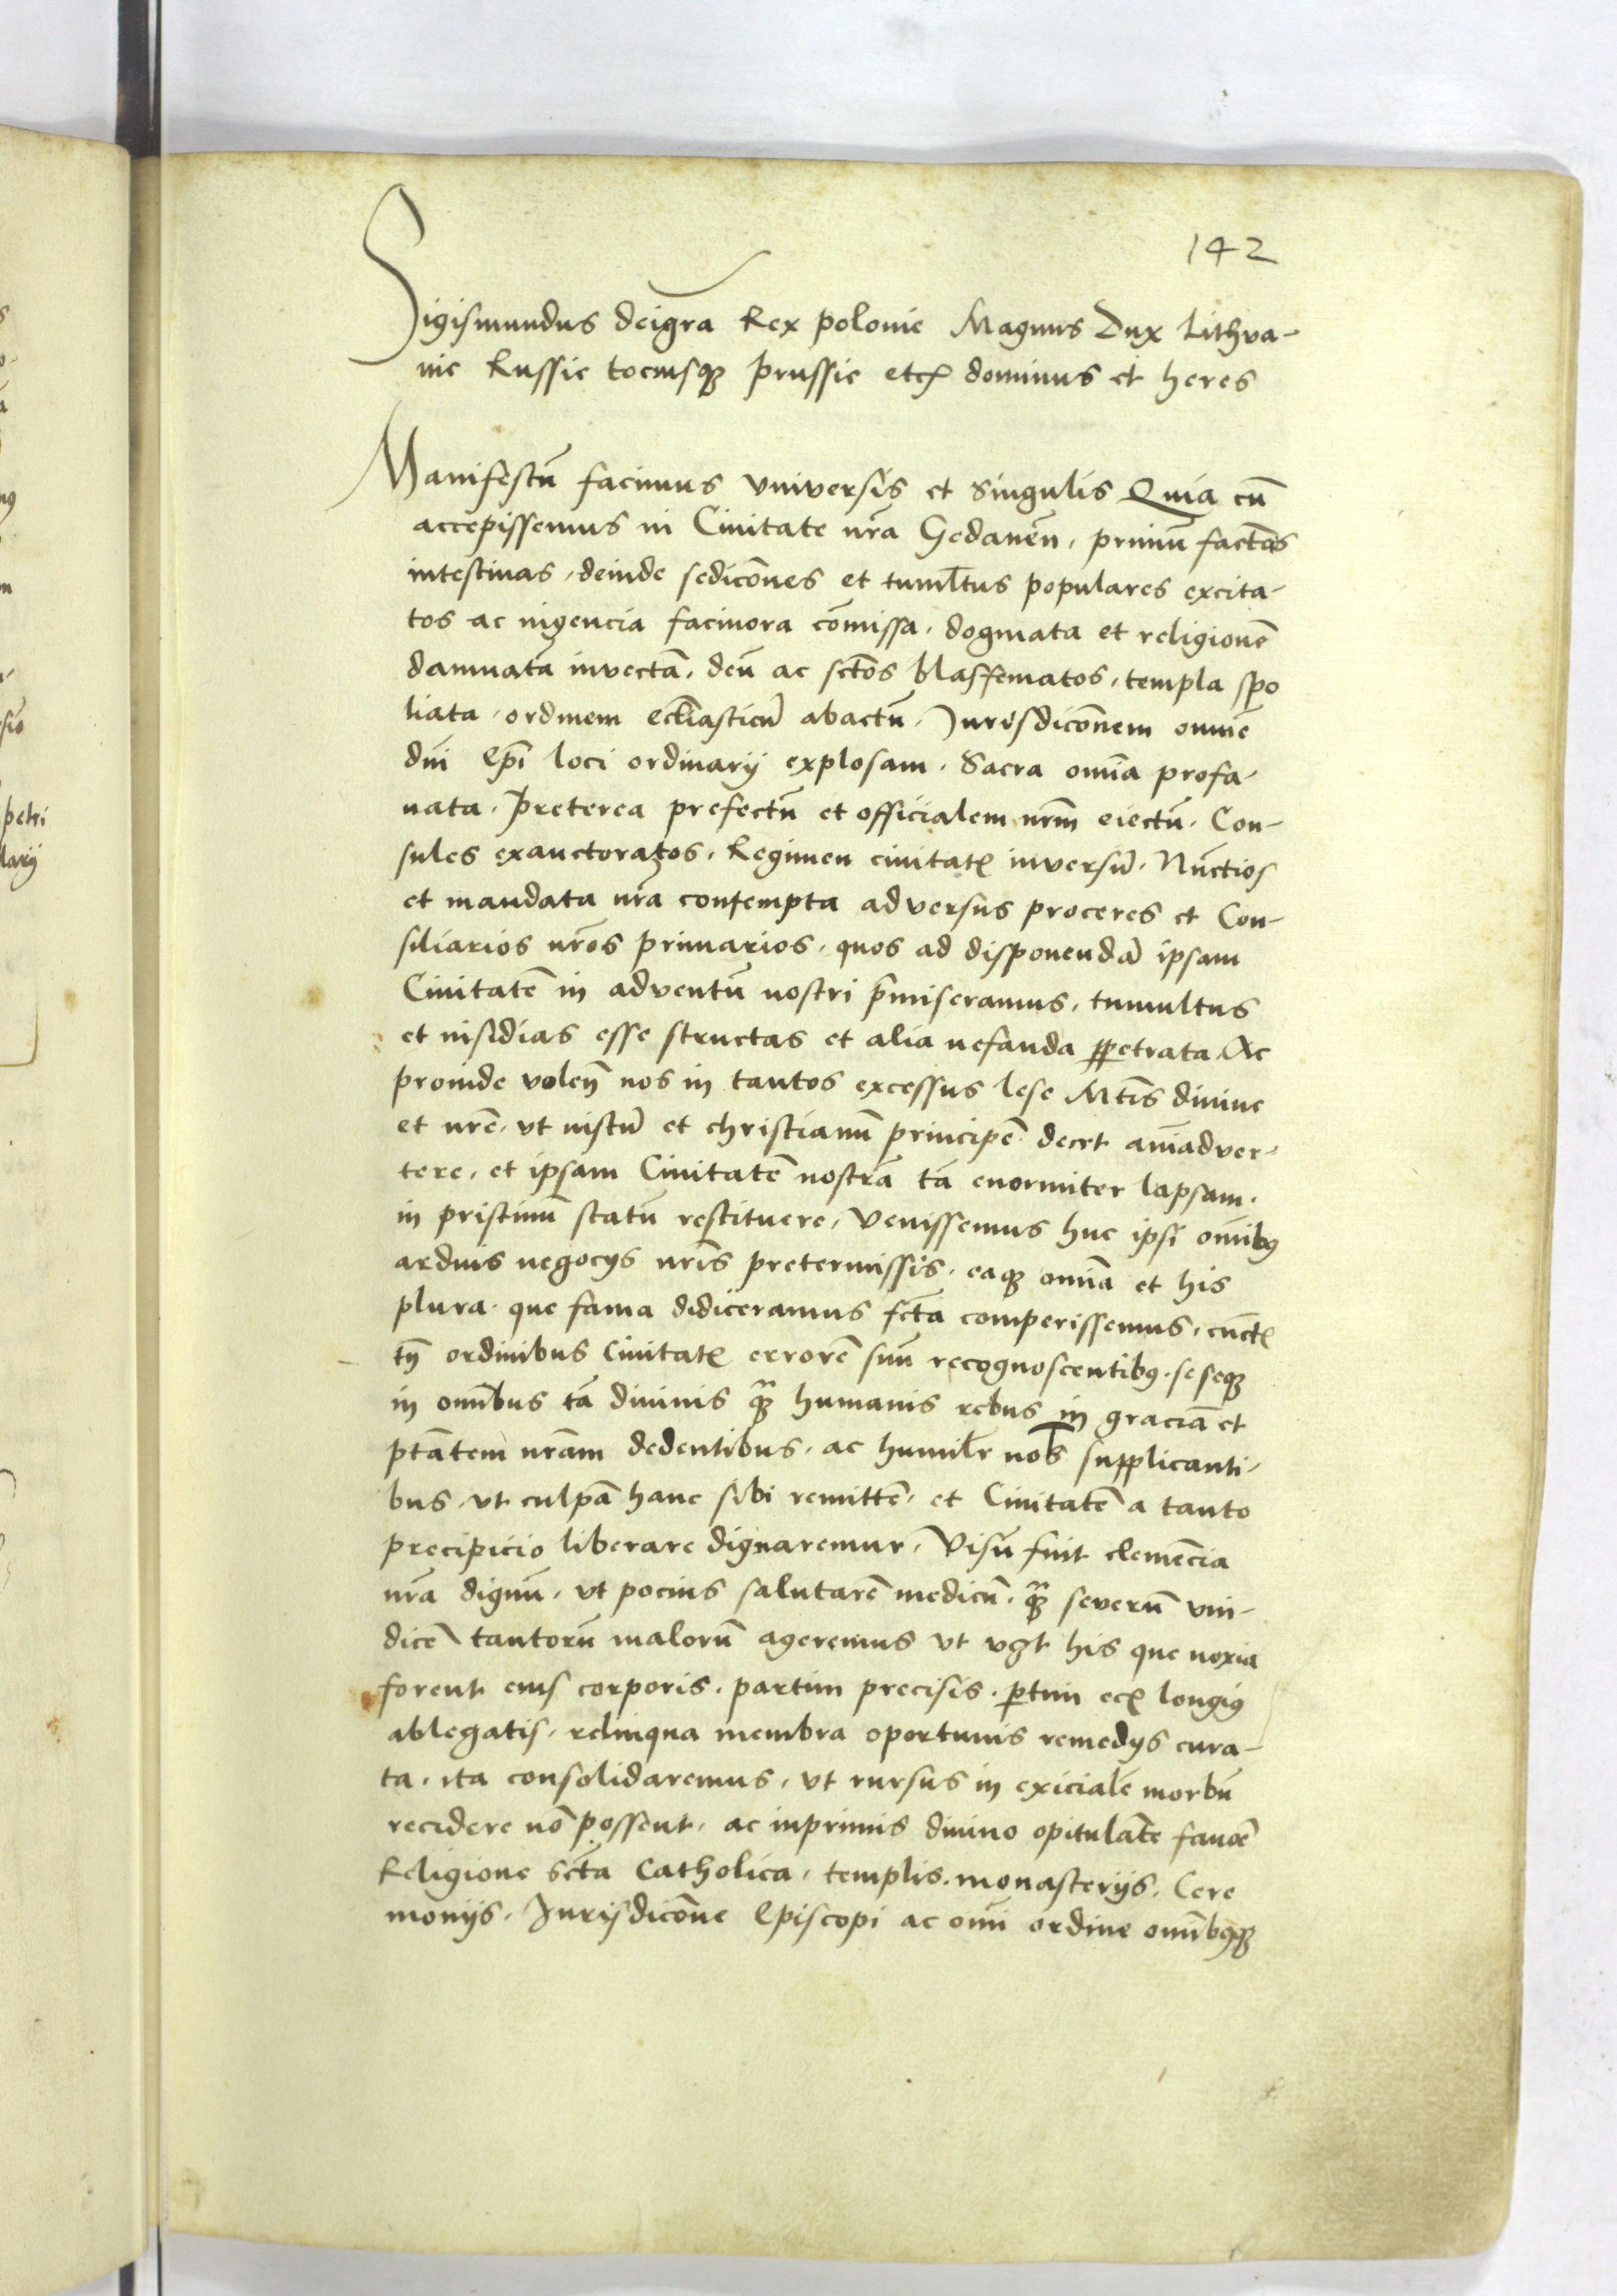 142
Sigismundus deigra Rex polonie Magnus Dux Lithva-
nie Russie tociusq Prussie etc dominus et heres
Manifestū facimus vniversis et singulis Quia cū
accepissemus in Civitate nrā Gedanen̄, primū factōes
intestinas, deinde sedicōnes et tumłtus populares excita-
tos ac ingencia facinora cōmissa, dogmata et religionē
damnatā invectā, deū ac sctōs blasfematos, templa spo
liata, ordinem eccliasticū abactū, Jurisdicōnem omnē
dni Epi loci ordinarij explosam, Sacra omīa profa-
nata, Preterea prefectū et officialem nrm̄ eiectū, Con-
sules exauctoratos, Regimen civitatę inversū, Nūctios
et mandata nrā contempta adversus proceres et Con-
siliarios nrōs primarios, quos ad disponendā ipsam
Civitatē in adventū nostri p̄miseramus, tumultus
et insidias esse structas et alia nefanda ꝑpetrata, Ac
proinde volen̄ nos in tantos excessus lese Mtis divine
et nrē, vt iustū et christianū principē decet aīadver-
tere, et ipsam Civitatē nostrā tā enormiter lapsam,
in pristinū statū restituere, Venissemus huc ipsi omībꝰ
arduis negocijs nrīs pretermissis, eaq omīa et his
plura que fama didiceramus fctā comperissemus, cūctę
tn̄ ordinibus Civitatę errorē suū recognoscentibꝰ, seseq
in omībus tā divinis q̃ humanis rebus in graciā et
ptātem nrām dedentibus, ac humilr nob supplicanti-
bus, vt culpā hanc sibi remittē, et Civitatē a tanto
precipicio liberare dignaremur, Visū fuit clemēcia
nrā dignū, vt pocius salutarē medicū, q̃ severū vin-
dicē tantorū malorū ageremus vt vʒt his que noxia
forent eius corporis, partim precisis, ꝑtim ecę longiꝰ
ablegatis, relinqua membra oportunis remedijs cura-
ta, ita consolidaremus, vt rursus in exicialē morbū
recidere nō possent, ac inprimis divino opitulātē favōē
Religione sctā Catholica, templis, monasterijs, Cere
monijs, Jurisdicōne Episcopi ac omī ordine omībꝰq